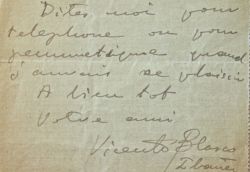 Dites moi pour
telephone ou pour
pneumatique quand
j'aurais le plaisir
A bien tot
Votre ami
Vicente Blasco
Ibañez